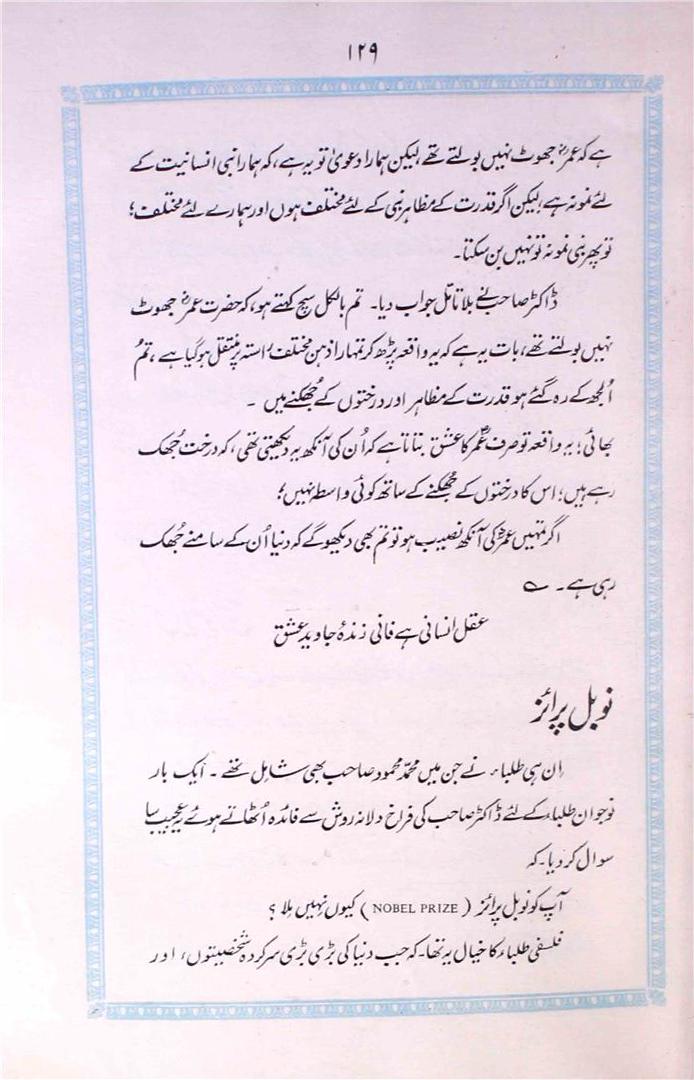 ۱۲۹
ہے کہ عمرؓ جھوٹ نہیں بولتے تھے، لیکن ہمارا دعویٰ تو یہ ہے، کہ ہمارا نبی انسانیت کے
لئے نمونہ ہے، لیکن اگر قدرت کے مظاہر نبی کے لئے مختلف ہوں اور ہمارے لئے مختلف؛
تو پھر نبی نمونہ تو نہیں بن سکتا۔
ڈاکٹر صاحب نے بلا تامّل جواب دیا۔ تم بالکل سچ کہتے ہو، کہ حضرت عمرؓ جھوٹ
نہیں بولتے تھے، بات یہ ہے کہ یہ واقعہ پڑھ کر تمہارا ذہن مختلف راستہ پر منتقل ہو گیا ہے، تم
اُلجھ کے رہ گئے ہو قدرت کے مظاہر اور درختوں کے جُھکنے میں ۔
بھائی؛ یہ واقعہ تو صرف عمرؓ کا عشق بتاتا ہے کہ اُن کی آنکھ یہ دیکھتی تھی، کہ درخت جُھک
رہے ہیں؛ اس کا درختوں کے جُھکنے کے ساتھ کوئی واسطہ نہیں؛
اگر تمہیں عمرؓ کی آنکھ نصیب ہو تو تم بھی دیکھو گے کہ دنیا اُن کے سامنے جُھک
رہی ہے۔ ؎
عقل انسانی ہے فانی زندۂ جاوید عشق
نوبل پرائز
اِن ہی طلباء نے جن میں محمّد محمود صاحب بھی شامِل تھے ۔ ایک بار
نوجوان طلباء کے لئے ڈاکٹر صاحب کی فراخ دلانہ روش سے فائدہ اُٹھاتے ہوئے یہ عجیب سا
سوال کر دیا۔ کہ
آپ کو نوبل پرائز (NOBEL PRIZE) کیوں نہیں مِلا ؟
فلسفی طلباء کا خیال یہ تھا۔ کہ جب دنیا کی بڑی بڑی سرکردہ شخصیتوں، اور